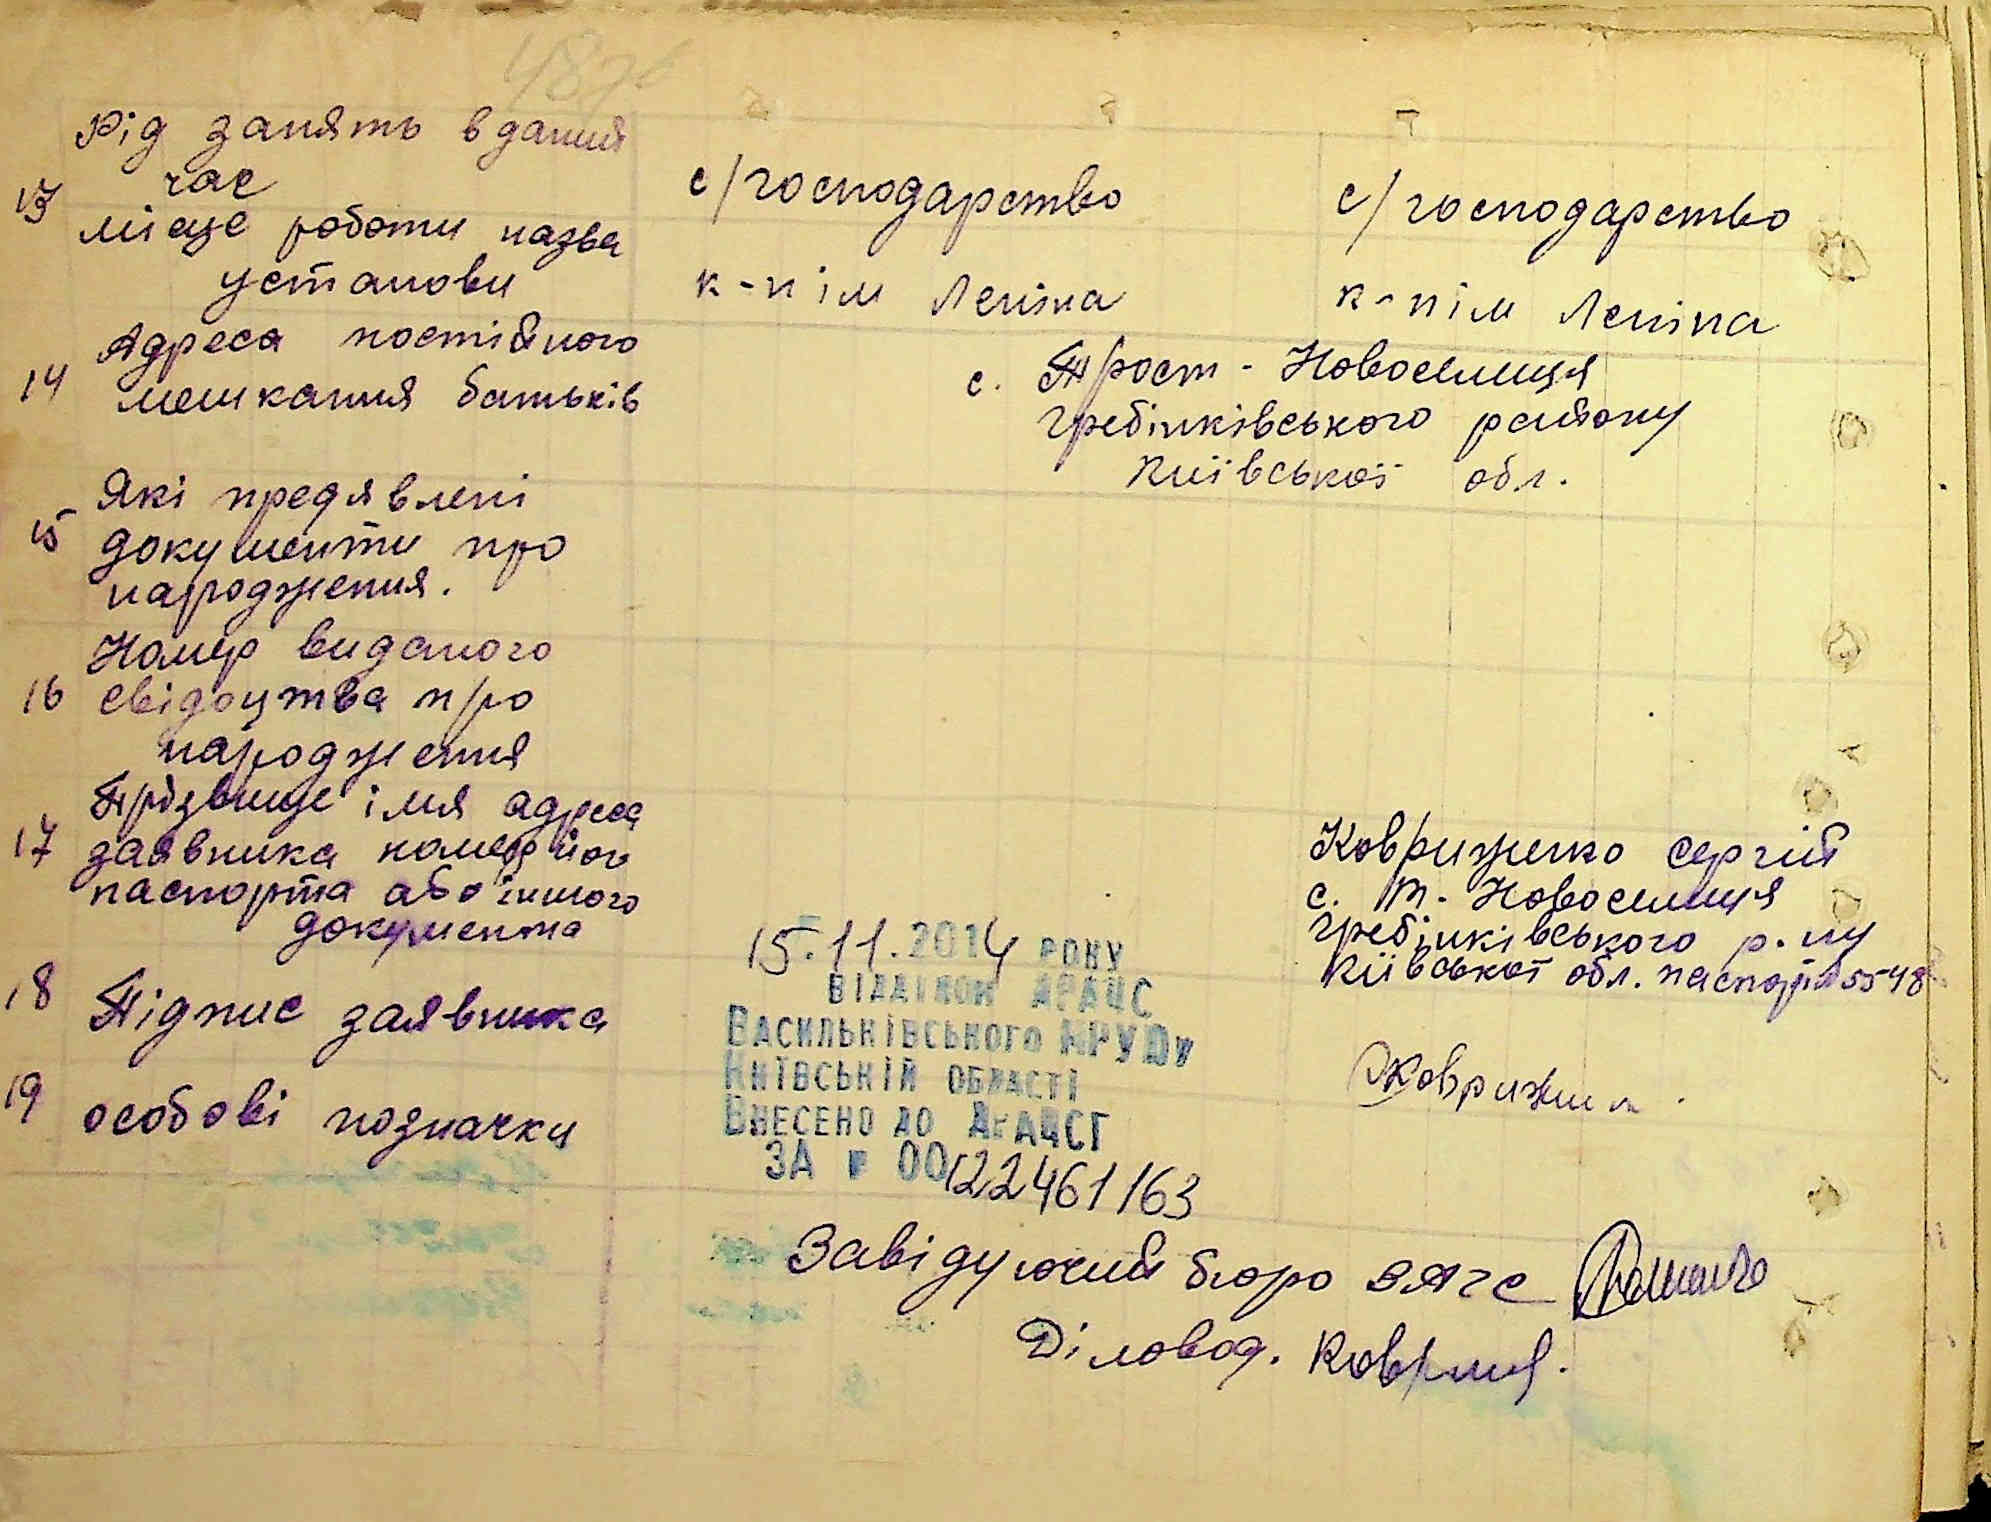 Рід занять в даний
час
13
місце роботи назва
установи
с/господарство
с/господарство
к-п ім Леніна
к-п ім Леніна
14
Адреса постійного
мешкання батьків
с. Трост-Новоселиця
Гребінківського району
Київської обл.
15
Які предявлені
документи про
народження.
16
Номер виданого
свідоцтва про
народження
17
Прізвище імя адреса
заявника номер його
паспорта або іншого
документа
Ковриженко Сергій
с. Т-Новоселиця
Гребінківського р-ну
Київської обл. паспорт 5548
18
Підпис заявника
19
особові позначки
15.11.2014 року
відділом ДРАЦС
Васильківського МРУЮ у
Київській області
Внесено до ДРАЦСГ
за № 00122461163
Завідуючий бюро ЗАГС
Діловод.